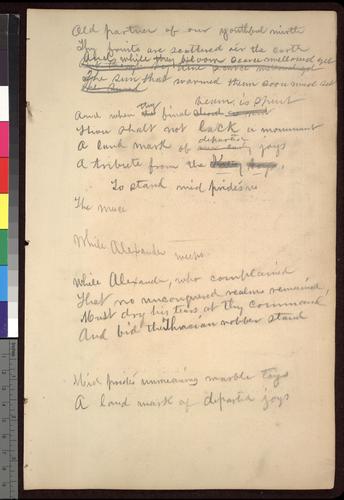 Old partner of our youthful mirth
Thy fruits are scattered o'er the earth
And while they bloom scarce mellowed yet
The sun that warmed them soon must set
beam is spent
And when thy final
Thou shalt not lack a monument
departed
A land mark of joys
A tribute from the
To stand mid pride's
The muse
While Alexander
While Alexander, who complained
That no unconquered realms remained,
Must dry his tears at thy command
And bid the Thracian robber stand
Mid pride's unmeaning marble toys
A land mark of departed joys